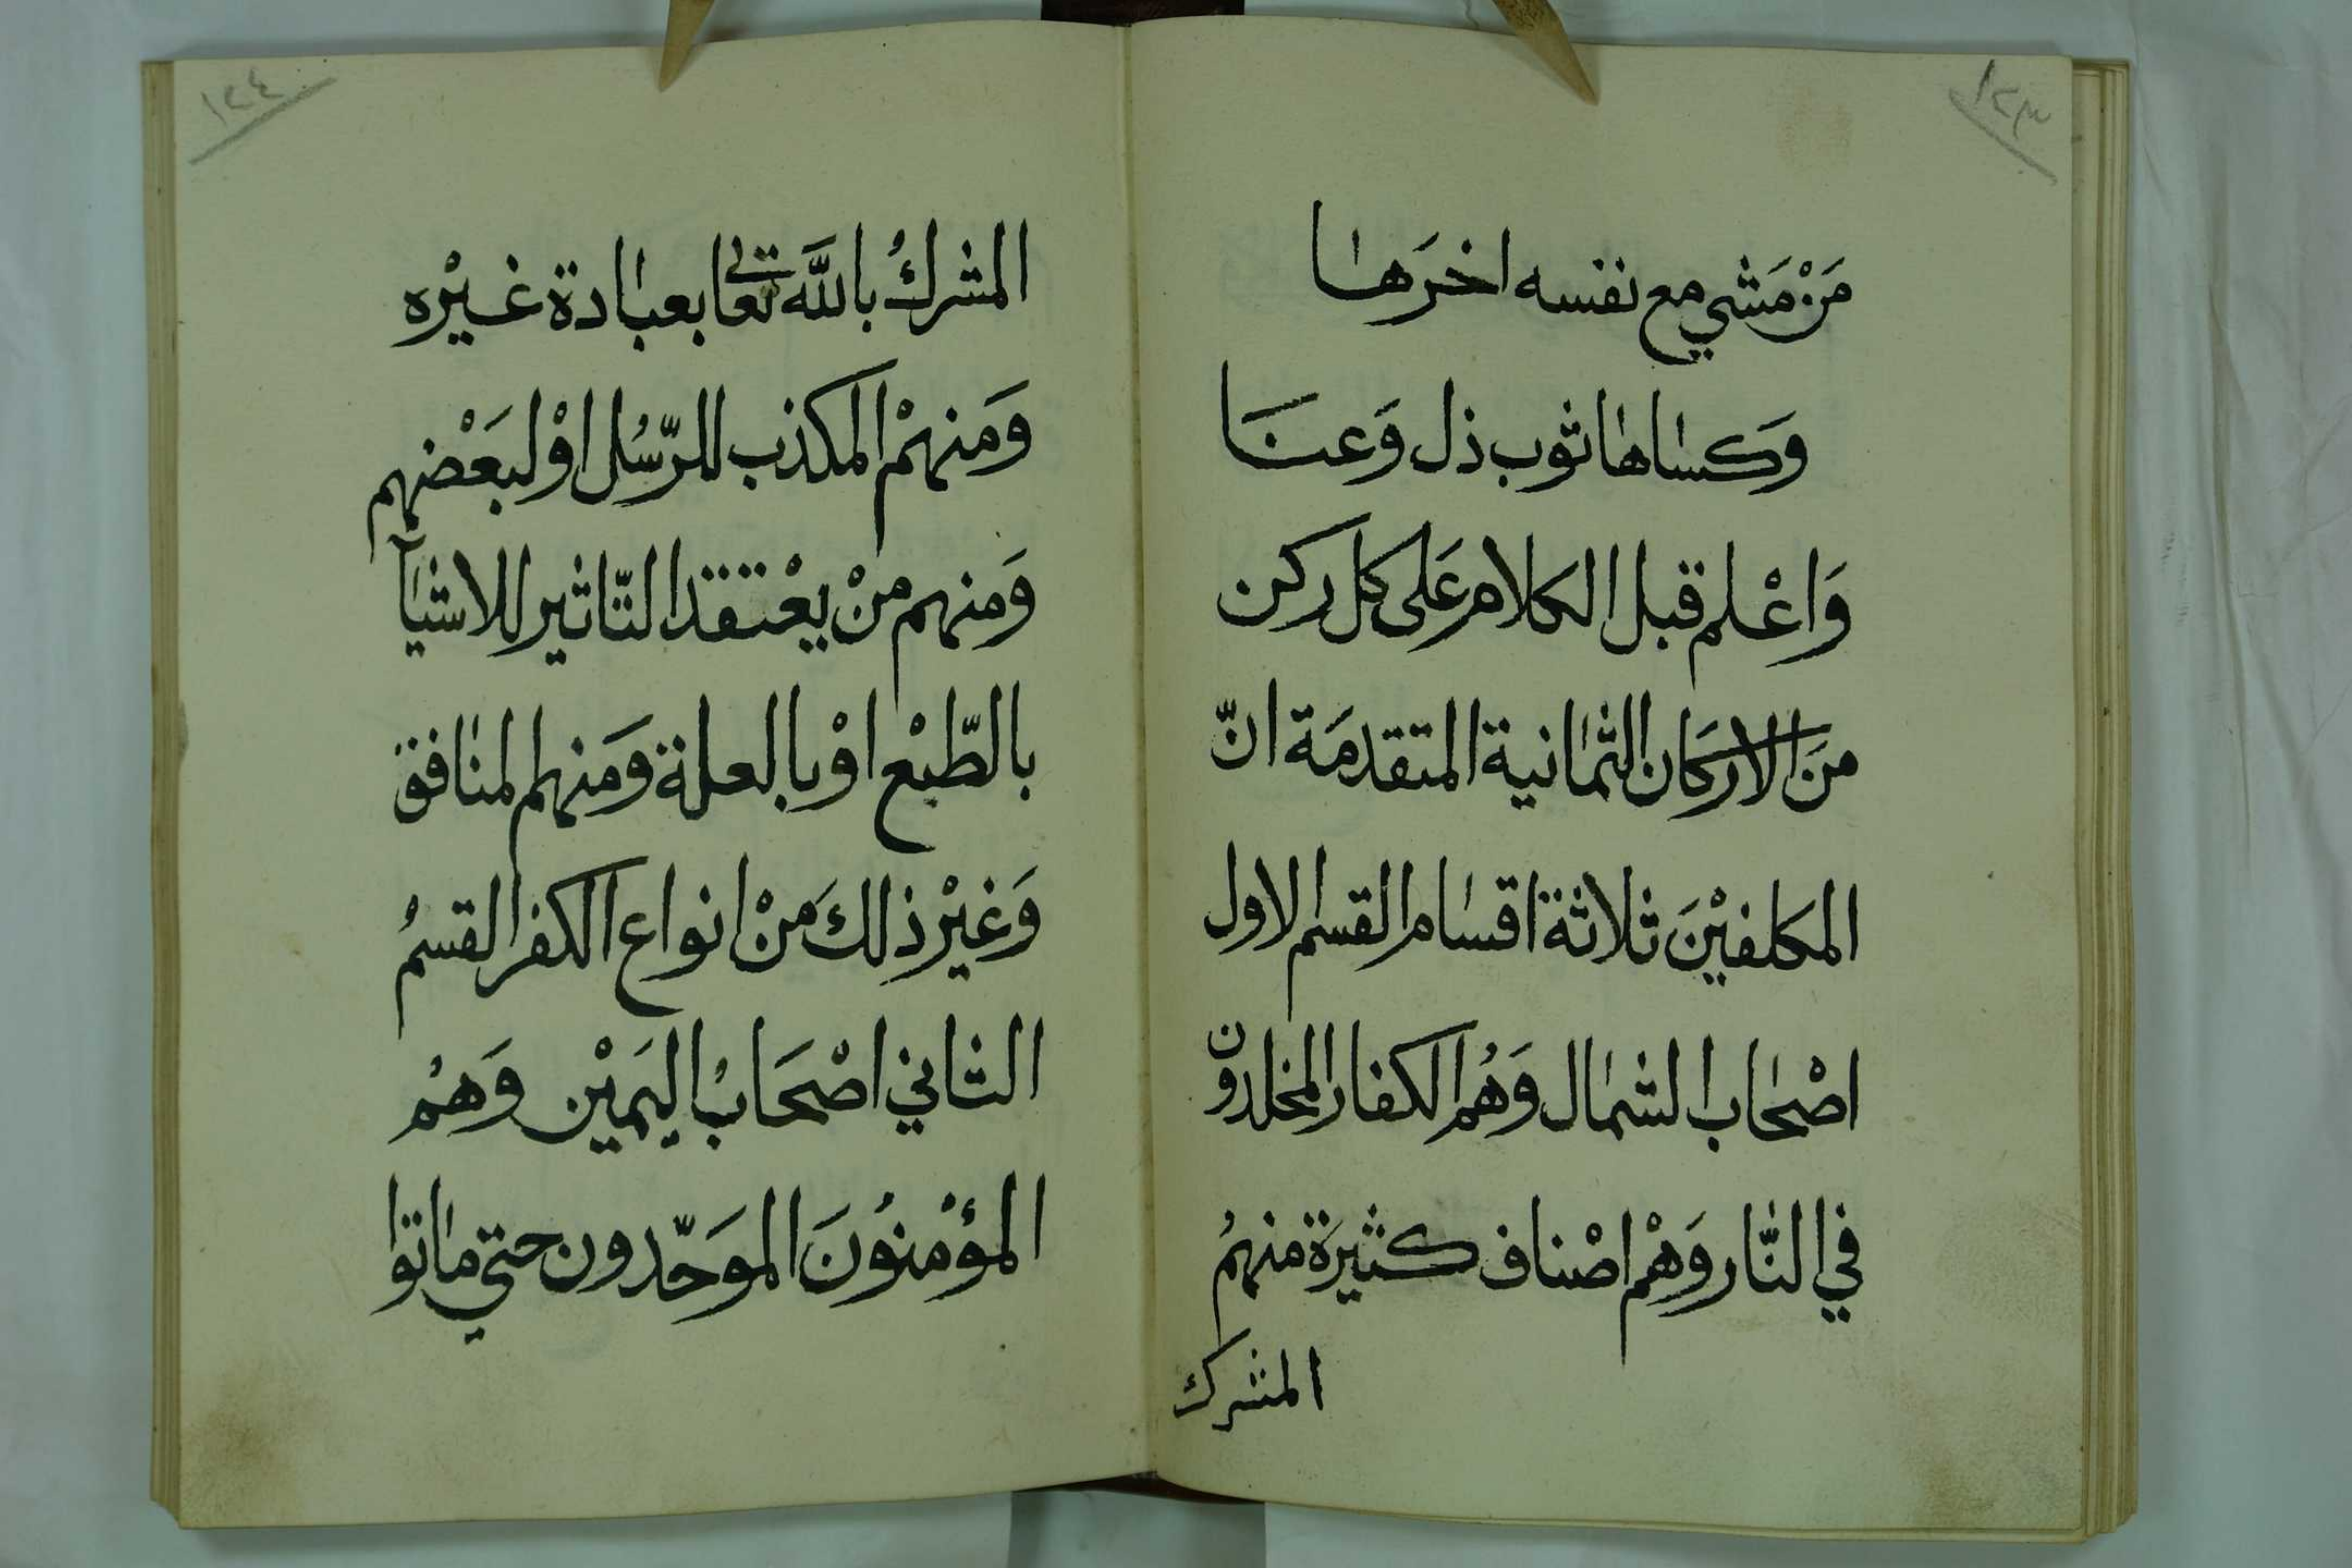 ١٢٣
مَنْ مَشي مع نفسه اخرَها
وَكساها ثوب ذل وَعنَا
وَاعْلم قبل الكلام عَلى كل ركن
منَ الاركَان الثمانية المتقدمَة انّ
المكلفيْنَ ثلاثة اقسام القسم الاول
اصْحاب الشمال وَهُم الكفار المخلدون
في النَّار وَهْم اصْناف كثيرَة منهمُ
المشرك
١٢٤
المشركُ باللَّه تعالى بعبادة غيْره
وَمنهمْ المكذب للرّسُل اوْ لبعَضْهم
وَمنهم منْ يعْتقد التّاثير للاشيآ
بالطّبْع اوْ بالعلة وَمنهم المنافق
وَغيْر ذلكَ منْ انواع الكفر القسمُ
الثاني اصْحَابُ اليَميْن وَهمُ
المؤْمنوُنَ الموَحّدون حتي ماتوا